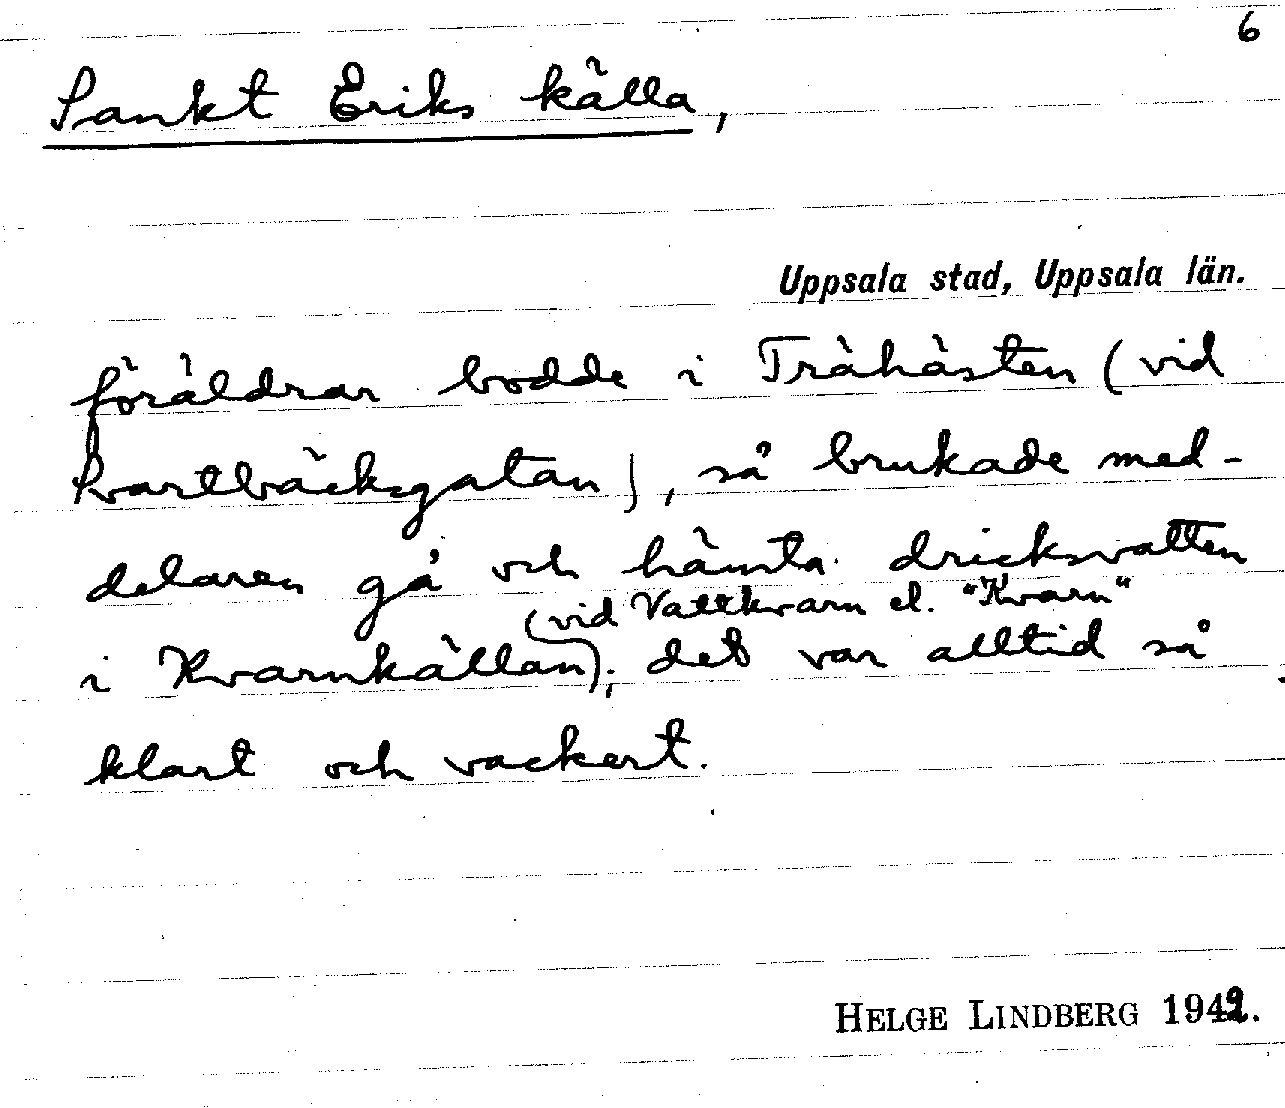 6
Sankt Eriks källa,
Uppsala stad, Uppsala län.
föräldrar bodde i Trähästen (vid
Svartbäcksgatan), så brukade med-
delaren gå och hämta dricksvatten
(vid Vattkvarn el. "Kvarn"
i Kvarnkällan); det var alltid så
klart och vackert.
HELGE LINDBERG